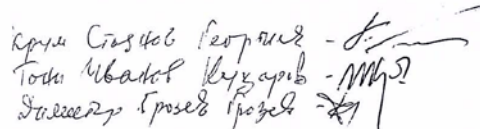 Крум Стоянов Георгиев -
Тони Иванов Куцаров -
Димитър Грозев Грозев -